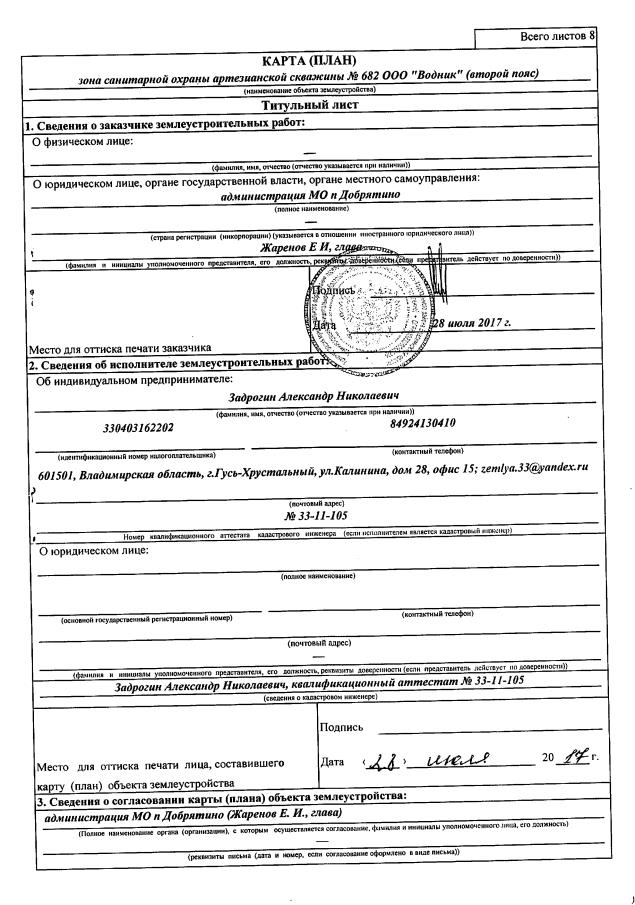 Всего листов 8
КАРТА (ПЛАН)
зона санитарной охраны артезианской скважины № 682 ООО "Водник" (второй пояс)
(наименование объекта землеустройства)
Титульный лист
1. Сведения о заказчике землеустроительных работ:
О физическом лице:
—
(фамилия, имя, отчество (отчество указывается при наличии))
О юридическом лице, органе государственной власти, органе местного самоуправления:
администрация МО п Добрятино
(полное наименование)
—
(страна регистрации (инкорпорации) (указывается в отношении иностранного юридического лица))
Жаренов Е И, глава
(фамилия и инициалы уполномоченного представителя, его должность, реквизиты доверенности (если представитель действует по доверенности))
Подпись
Дата 28 июля 2017 г.
Место для оттиска печати заказчика
2. Сведения об исполнителе землеустроительных работ:
Об индивидуальном предпринимателе:
Задрогин Александр Николаевич
(фамилия, имя, отчество (отчество указывается при наличии))
330403162202 84924130410
(идентификационный номер налогоплательщика) (контактный телефон)
601501, Владимирская область, г.Гусь-Хрустальный, ул.Калинина, дом 28, офис 15; zemlya.33@yandex.ru
(почтовый адрес)
№ 33-11-105
Номер квалификационного аттестата кадастрового инженера (если исполнителем является кадастровый инженер)
О юридическом лице:
(полное наименование)
(основной государственный регистрационный номер) (контактный телефон)
(почтовый адрес)
—
(фамилия и инициалы уполномоченного представителя, его должность, реквизиты доверенности (если представитель действует по доверенности))
Задрогин Александр Николаевич, квалификационный аттестат № 33-11-105
(сведения о кадастровом инженере)
Подпись
Дата «28» июля 2017 г.
Место для оттиска печати лица, составившего
карту (план) объекта землеустройства
3. Сведения о согласовании карты (плана) объекта землеустройства:
администрация МО п Добрятино (Жаренов Е. И., глава)
(Полное наименование органа (организации), с которым осуществляется согласование, фамилия и инициалы уполномоченного лица, его должность)
—
(реквизиты письма (дата и номер, если согласование оформлено в виде письма))